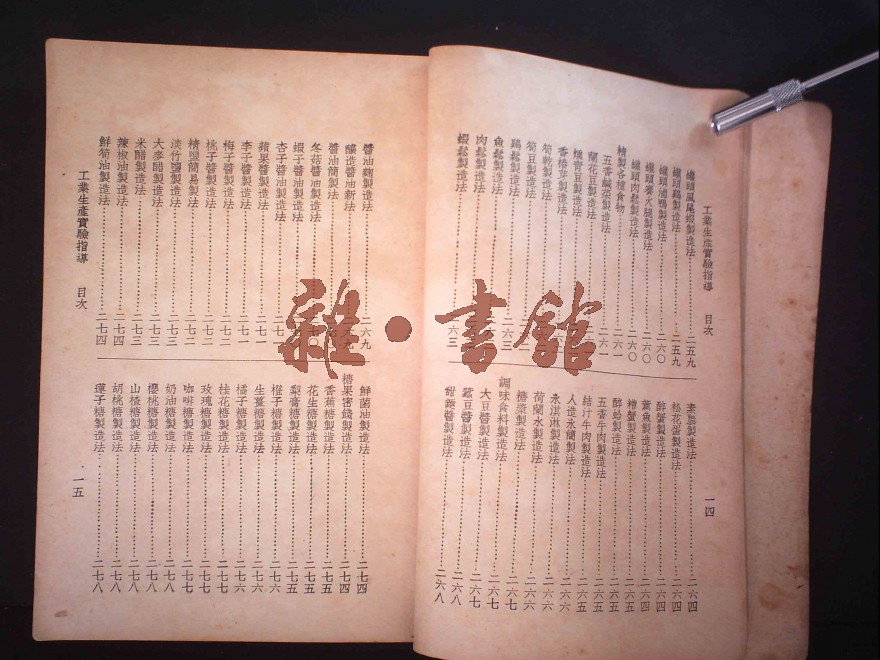 工業生產實驗指導 目次 一四
罐頭鳳尾蝦製造法 二五九
罐頭鷄製造法 二五九
罐頭燒鴨製造法 二六〇
罐頭雲火腿製造法 二六〇
罐頭肉鬆製造法 二六〇
精製各種食物 二六一
五香鹹菜製造法 二六一
蘭花豆製造法
燻青豆製造法
香椿芽製造法
筍乾製造法
筍豆製造法
鷄鬆製造法 二六三
魚鬆製造法
肉鬆製造法
蝦鬆製造法 二六三
素鬆製造法 二六四
松花蛋製造法 二六四
醉蟹製造法 二六四
薰魚製造法 二六四
糟蟹製造法 二六五
醉蛤製造法 二六五
五香牛肉製造法 二六五
結汁牛肉製造法 二六五
人造冰簡製法 二六六
冰淇淋製造法 二六六
荷蘭水製造法 二六六
糖漿製造法 二六七
調味食料製造法 二六七
大豆醬製造法 二六七
蠶豆醬製造法 二六八
甜麵醬製造法 二六八
醬油麴製造法 二六九
釀造醬油新法 二六九
醬油簡製法
冬菇醬油製造法 二七〇
蝦子醬油製造法
杏子醬製造法
蘋果醬製造法 二七一
李子醬製造法 二七一
梅子醬製造法 二七二
桃子醬製造法 二七二
精鹽簡易製法 二七二
淡竹鹽製造法 二七三
大麥醋製造法 二七三
米醋製造法 二七三
辣椒油製造法 二七四
鮮筍油製造法 二七四
鮮菌油製造法 二七四
糖果密餞製造法 二七四
香蕉糖製造法 二七五
花生糖製造法 二七五
梨膏糖製造法 二七五
橙子糖製造法 二七六
生薑糖製造法 二七六
橘子糖製造法 二七六
桂花糖製造法 二七六
玫瑰糖製造法 二七七
咖啡糖製造法 二七七
奶油糖製造法 二七八
櫻桃糖製造法 二七八
山楂糖製造法 二七八
胡桃糖製造法 二七八
蓮子糖製造法 二七八
工業生產實驗指導 目次 一五
雜·書館